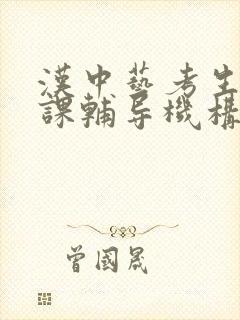 漢中藝考生
課輔导機構
曾國晟